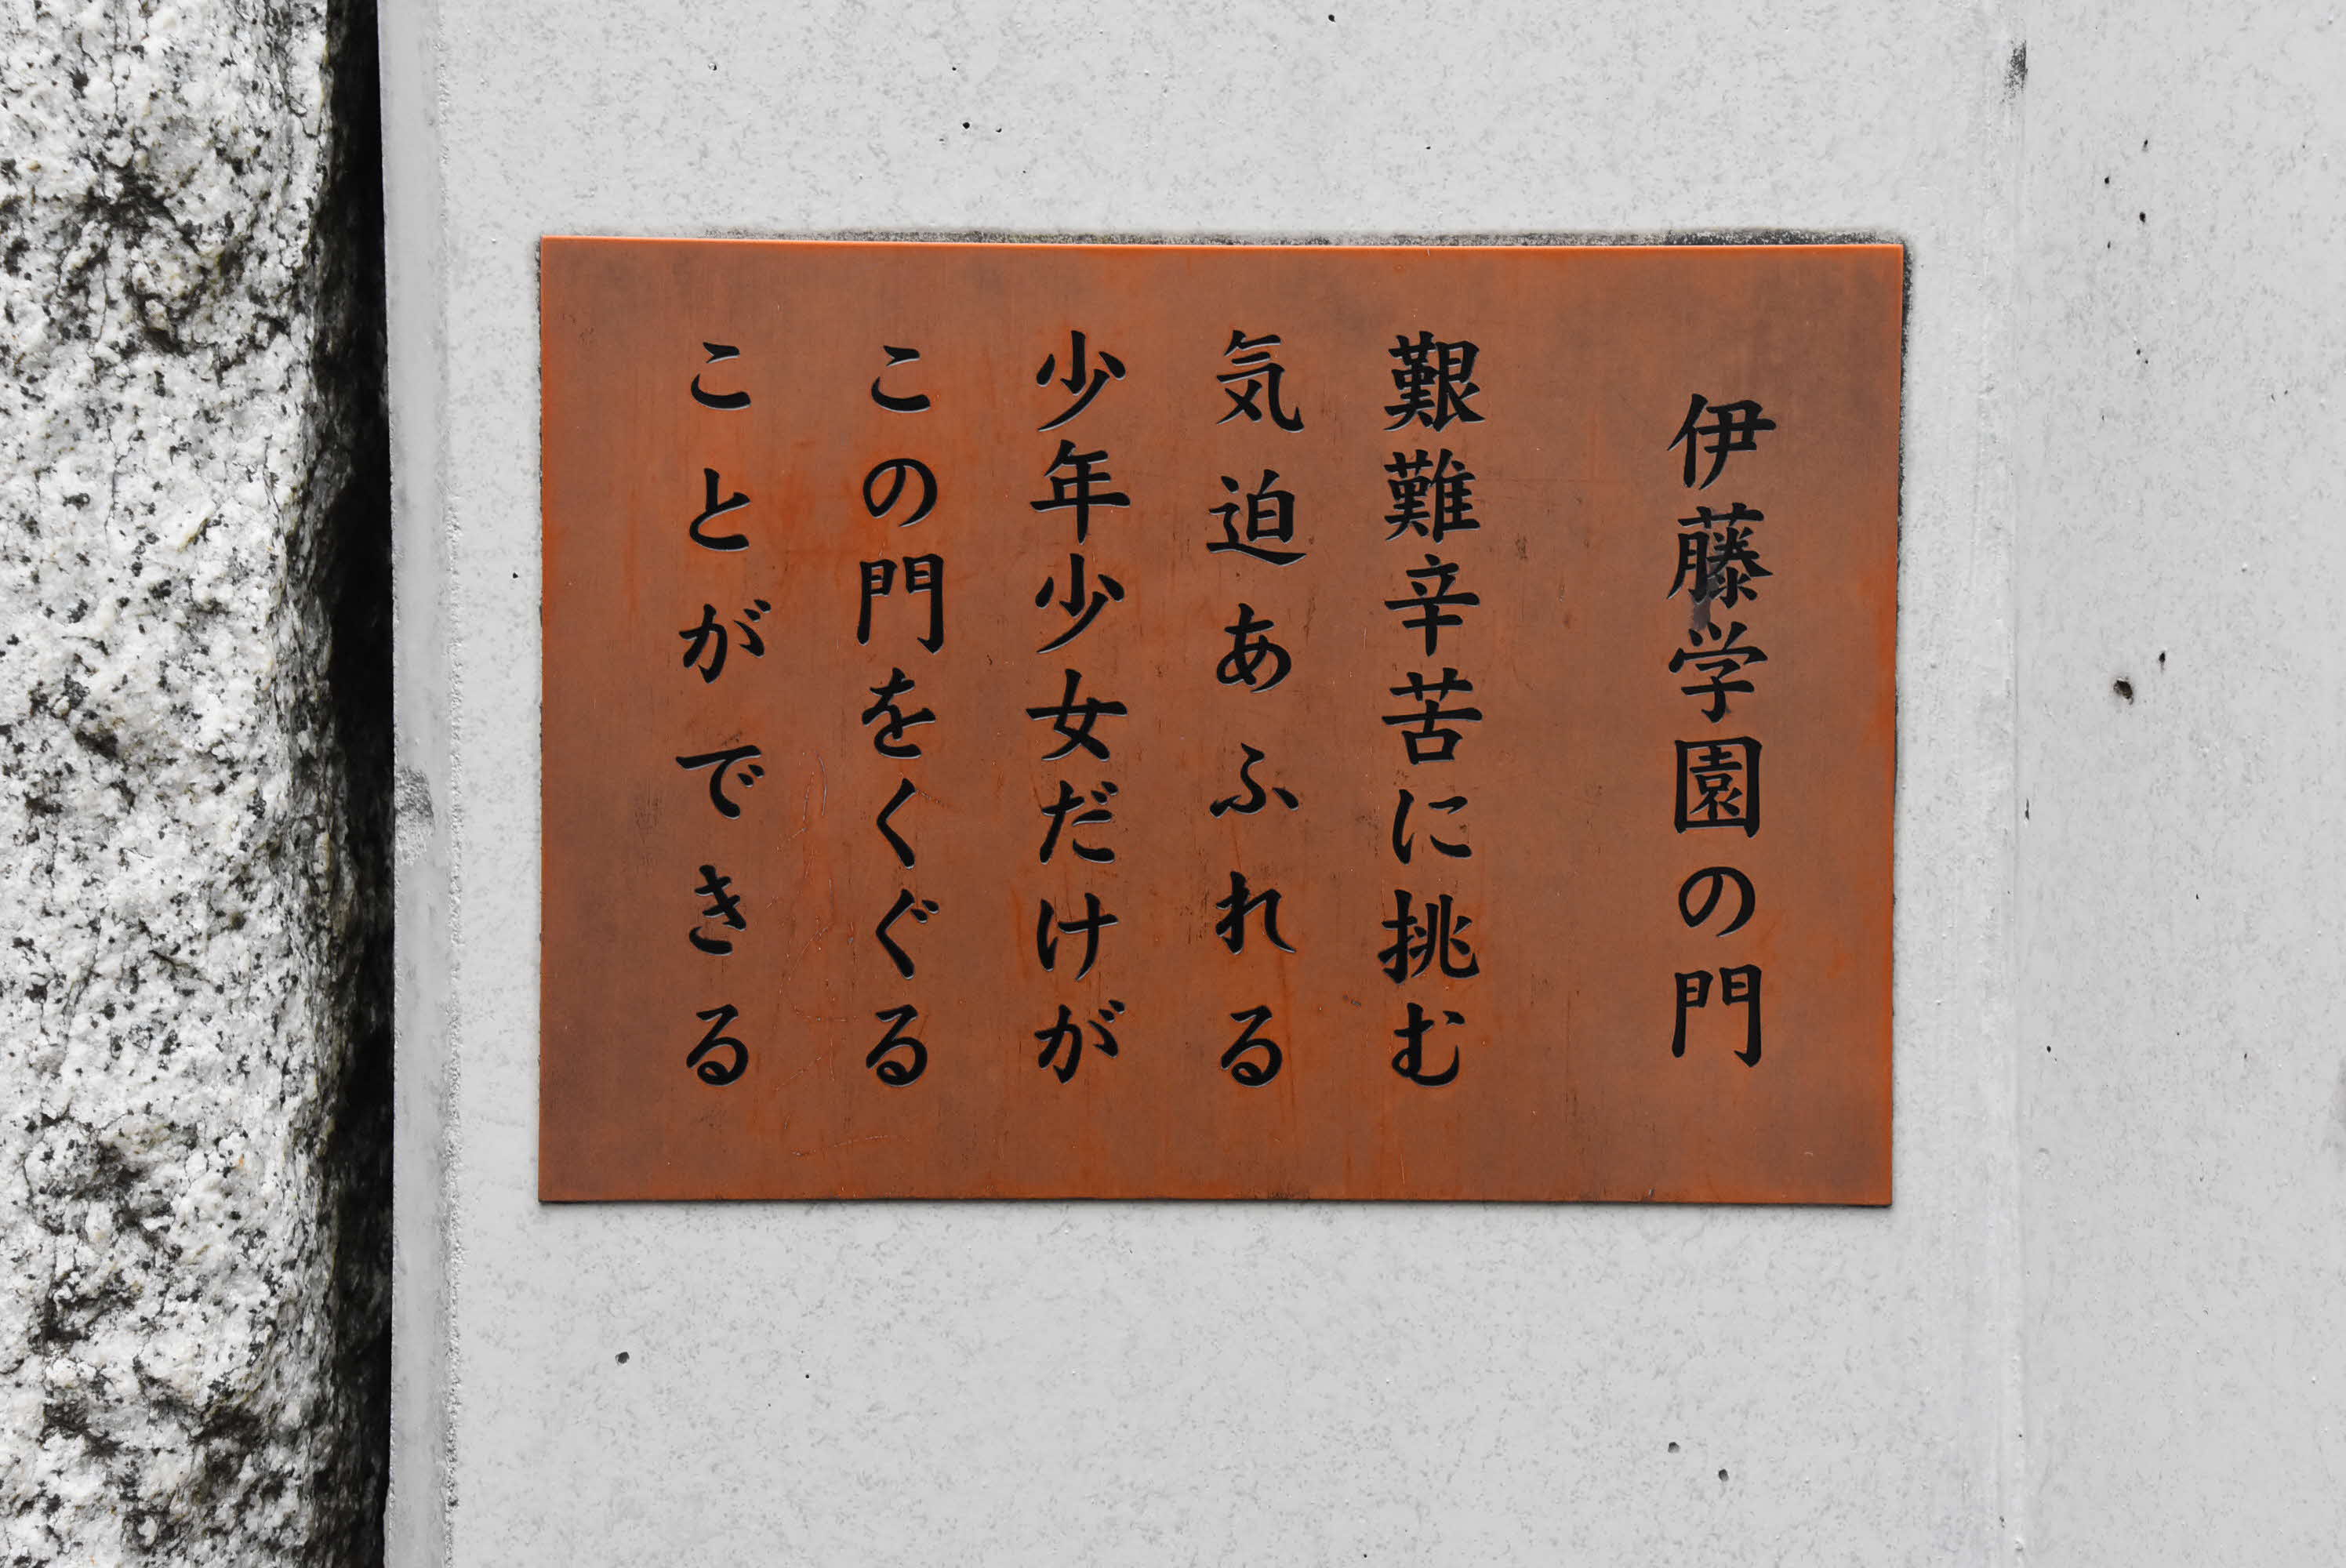 伊藤学園の門
艱難辛苦に挑む
気迫あふれる
少年少女だけが
この門をくぐる
ことができる